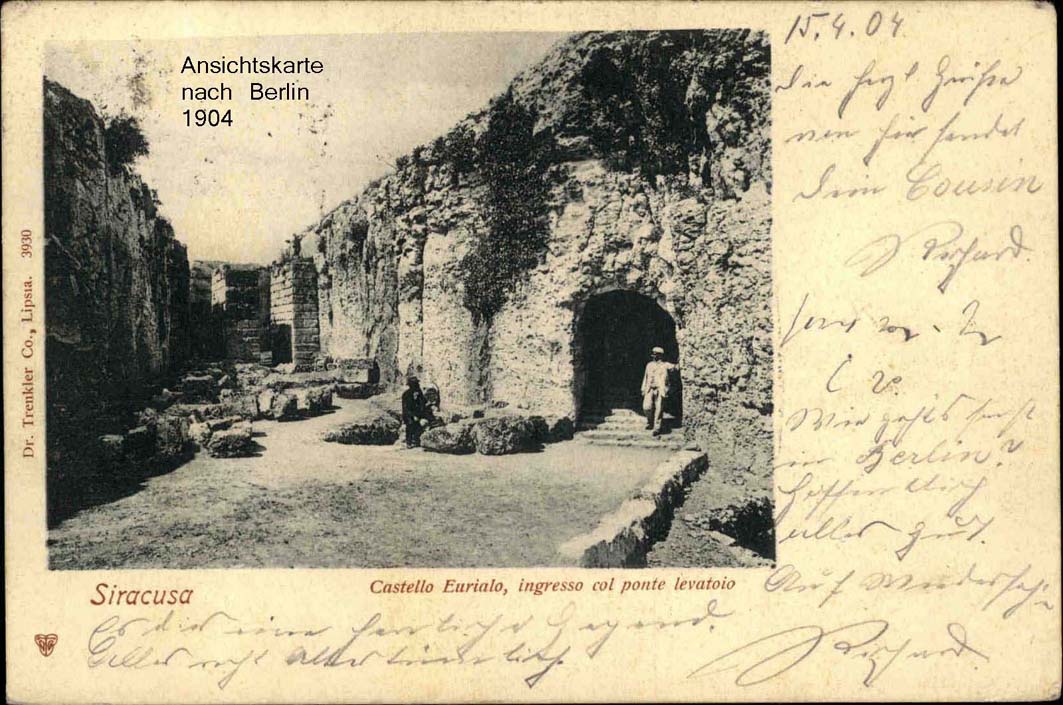 Ansichtskarte
nach Berlin
1904
15.4.04
Die herzl Grüße
von hier sendet
Dein Cousin
Richard.
Wie geht's sonst
in Berlin?
Hoffentlich
alles gut.
Auf Wiedersehn
Richard.
Dr. Trenkler Co., Lipsia. 3930
Siracusa
Castello Eurialo, ingresso col ponte levatoio
Es ist eine herrliche Gegend.
Alles recht altertümlich.